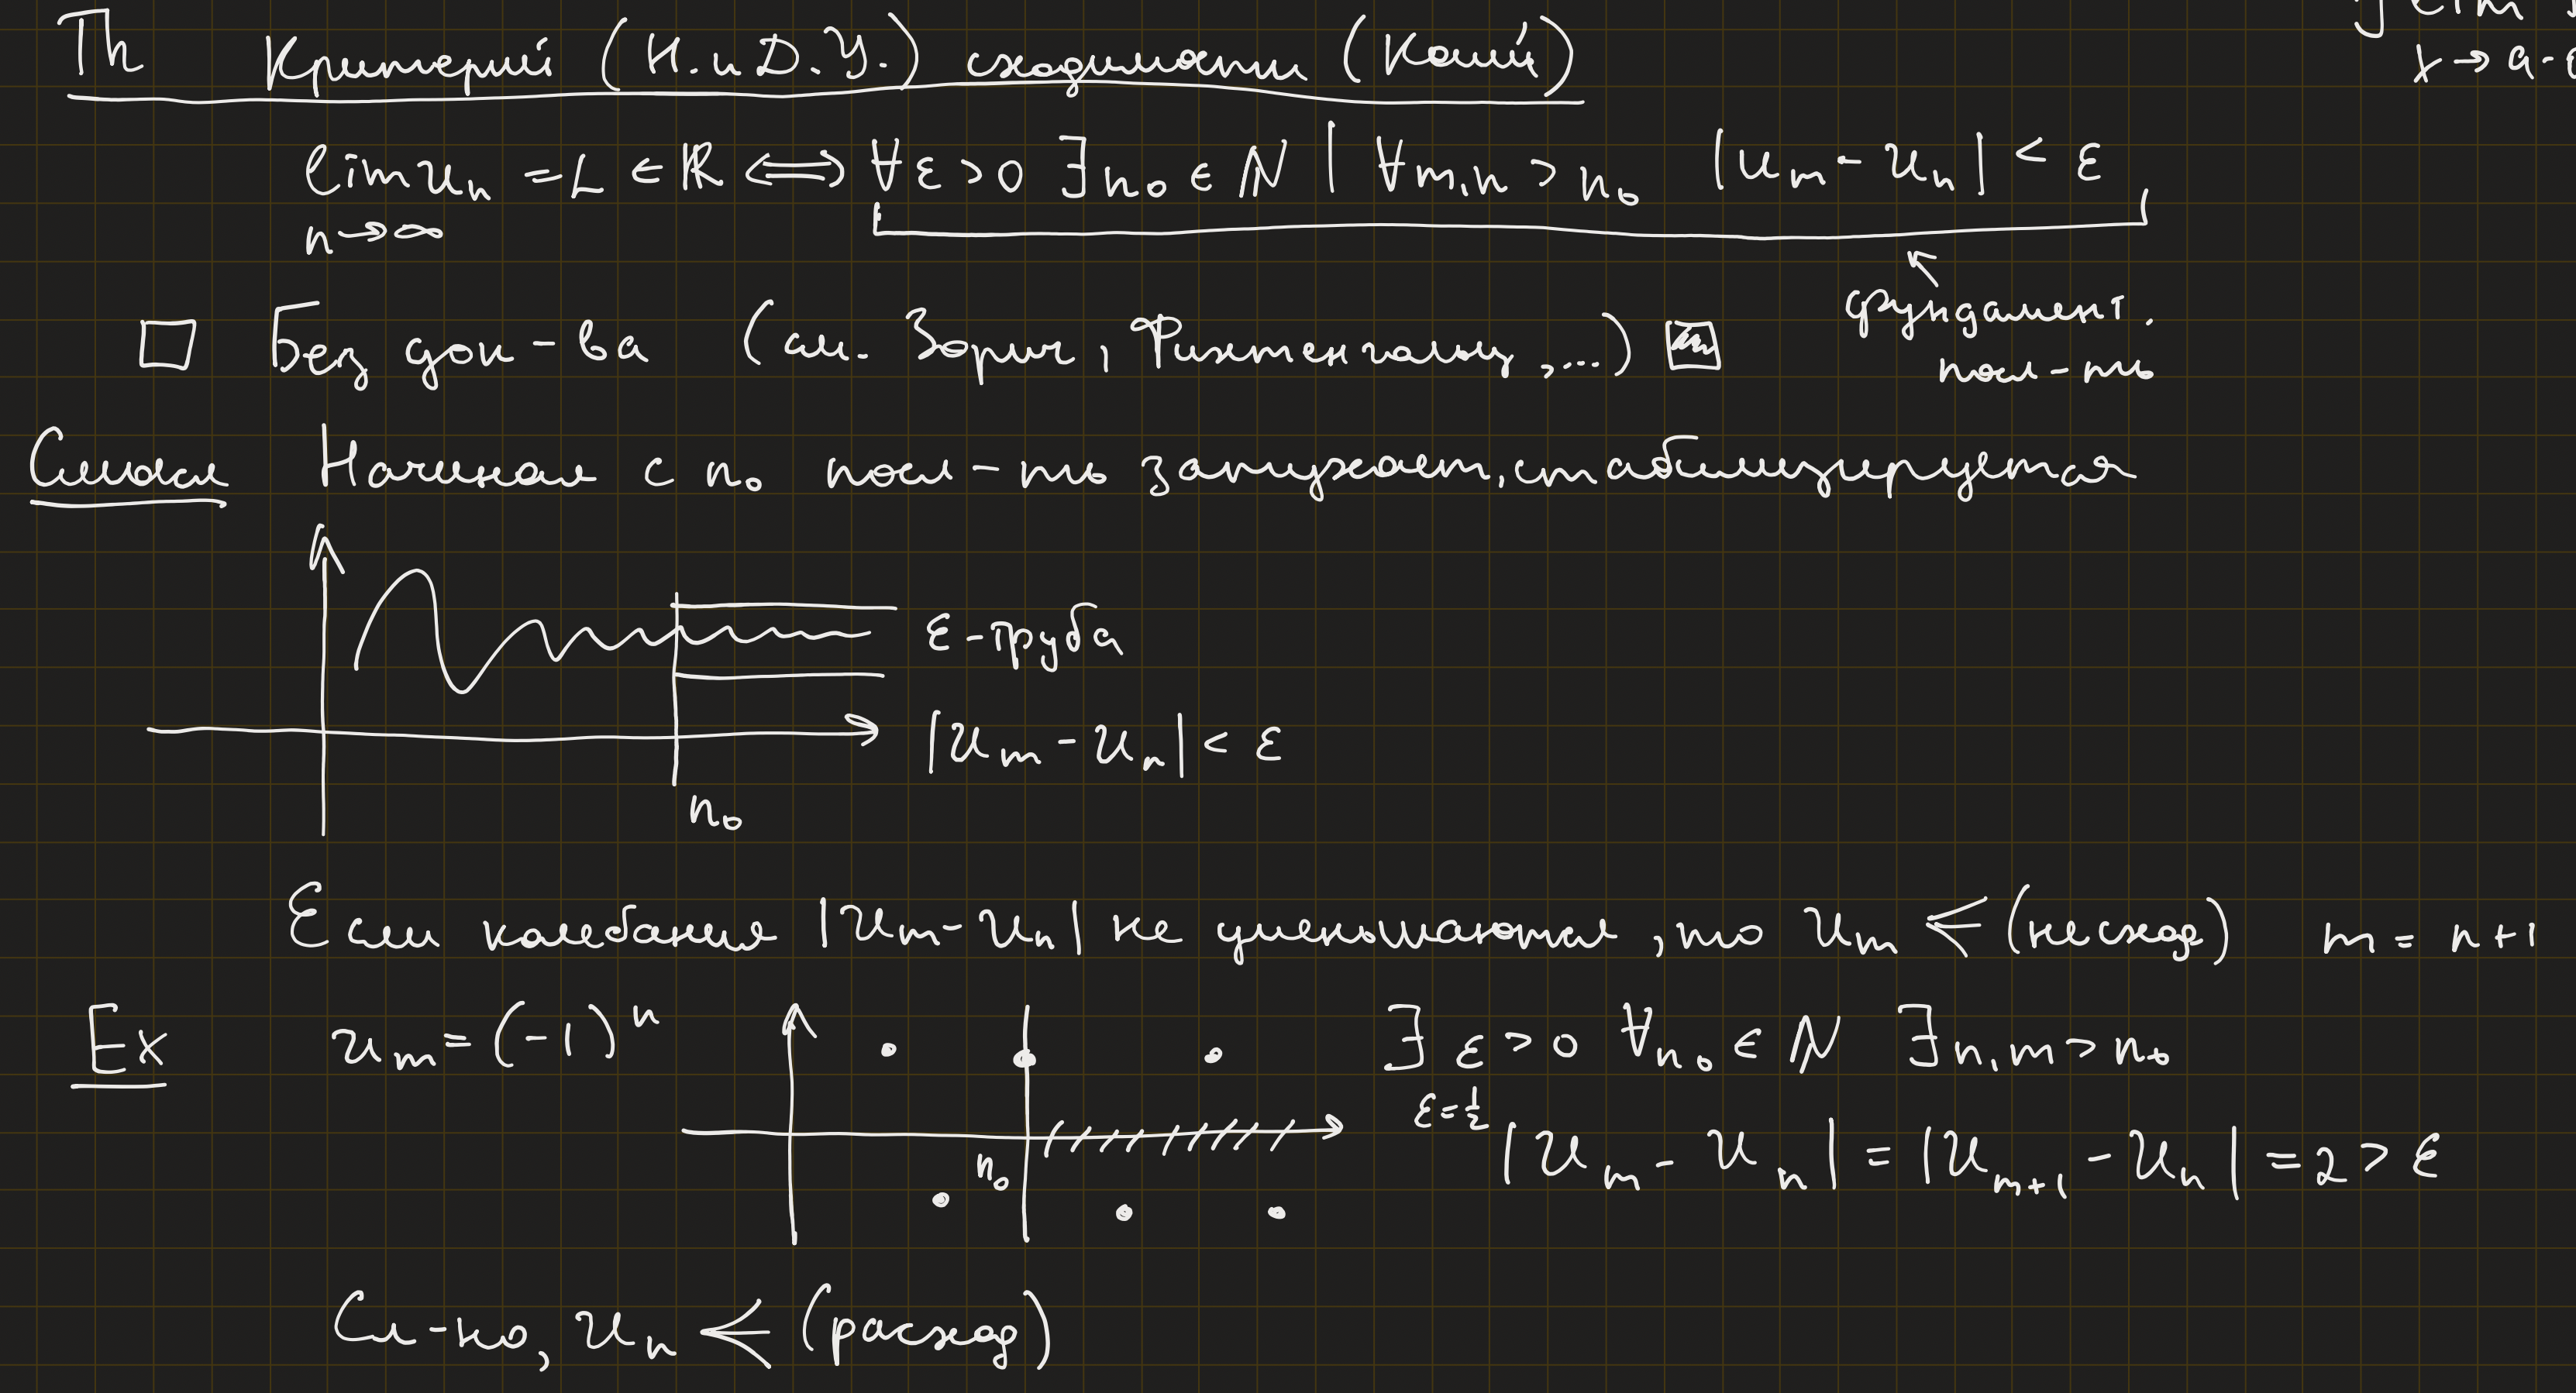 Th Критерий (Н. и Д. У.) сходимости (Коши)
lim uₙ = L ∈ ℝ ⟺ ∀ε > 0 ∃n₀ ∈ N | ∀m,n > n₀ |uₘ - uₙ| < ε
n→∞
x → a-
фундамент.
□ Без док-ва (см. Зорич, Фихтенгольц, ...)
посл-ть
Смысл Начиная с n₀ посл-ть затухает, стабилизируется
ε-труба
|uₘ - uₙ| < ε
n₀
Если колебания |uₘ - uₙ| не уменьшаются, то uₘ ⋲ (не сход) m = n+1
Ex uₘ = (-1)ⁿ ∃ ε > 0 ∀n₀ ∈ N ∃n,m > n₀
ε = 1/2
n₀ |uₘ - uₙ| = |uₘ₊₁ - uₙ| = 2 > ε
Сл-но, uₙ ⋲ (расход)